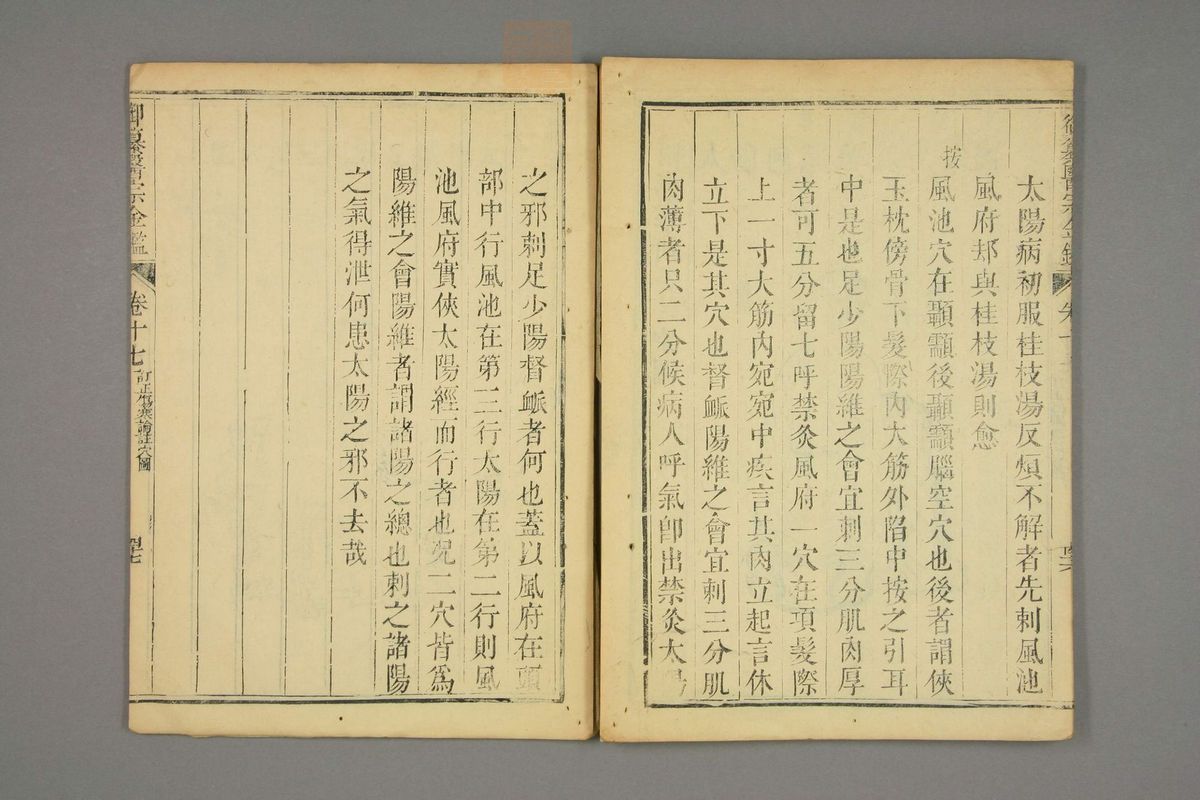 御纂醫宗金鑑
卷十
太陽病初服桂枝湯反煩不解者先刺風池
風府却與桂枝湯則愈
按
風池穴在顳顬後顳顬腦空穴也後者謂俠
玉枕傍骨下髮際內大筋外陷中按之引耳
中是也足少陽陽維之會宜刺三分肌肉厚
者可五分留七呼禁灸風府一穴在項髮際
上一寸大筋內宛宛中疾言其肉立起言休
立下是其穴也督䘑陽維之會宜刺三分肌
肉薄者只二分候病人呼氣卽出禁灸太陽
之邪刺足少陽督䘑者何也蓋以風府在頭
部中行風池在第三行太陽在第二行則風
池風府實俠太陽經而行者也况二穴皆爲
陽維之會陽維者謂諸陽之總也刺之諸陽
之氣得泄何患太陽之邪不去哉
御纂醫宗金鑑
卷十七
訂正傷寒論註穴圖